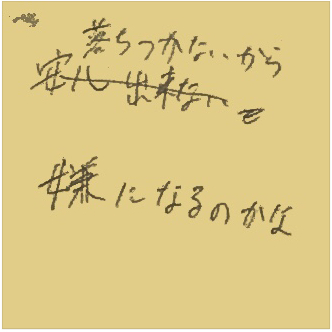 落ちつかないから
安心出来ない
嫌になるのかな